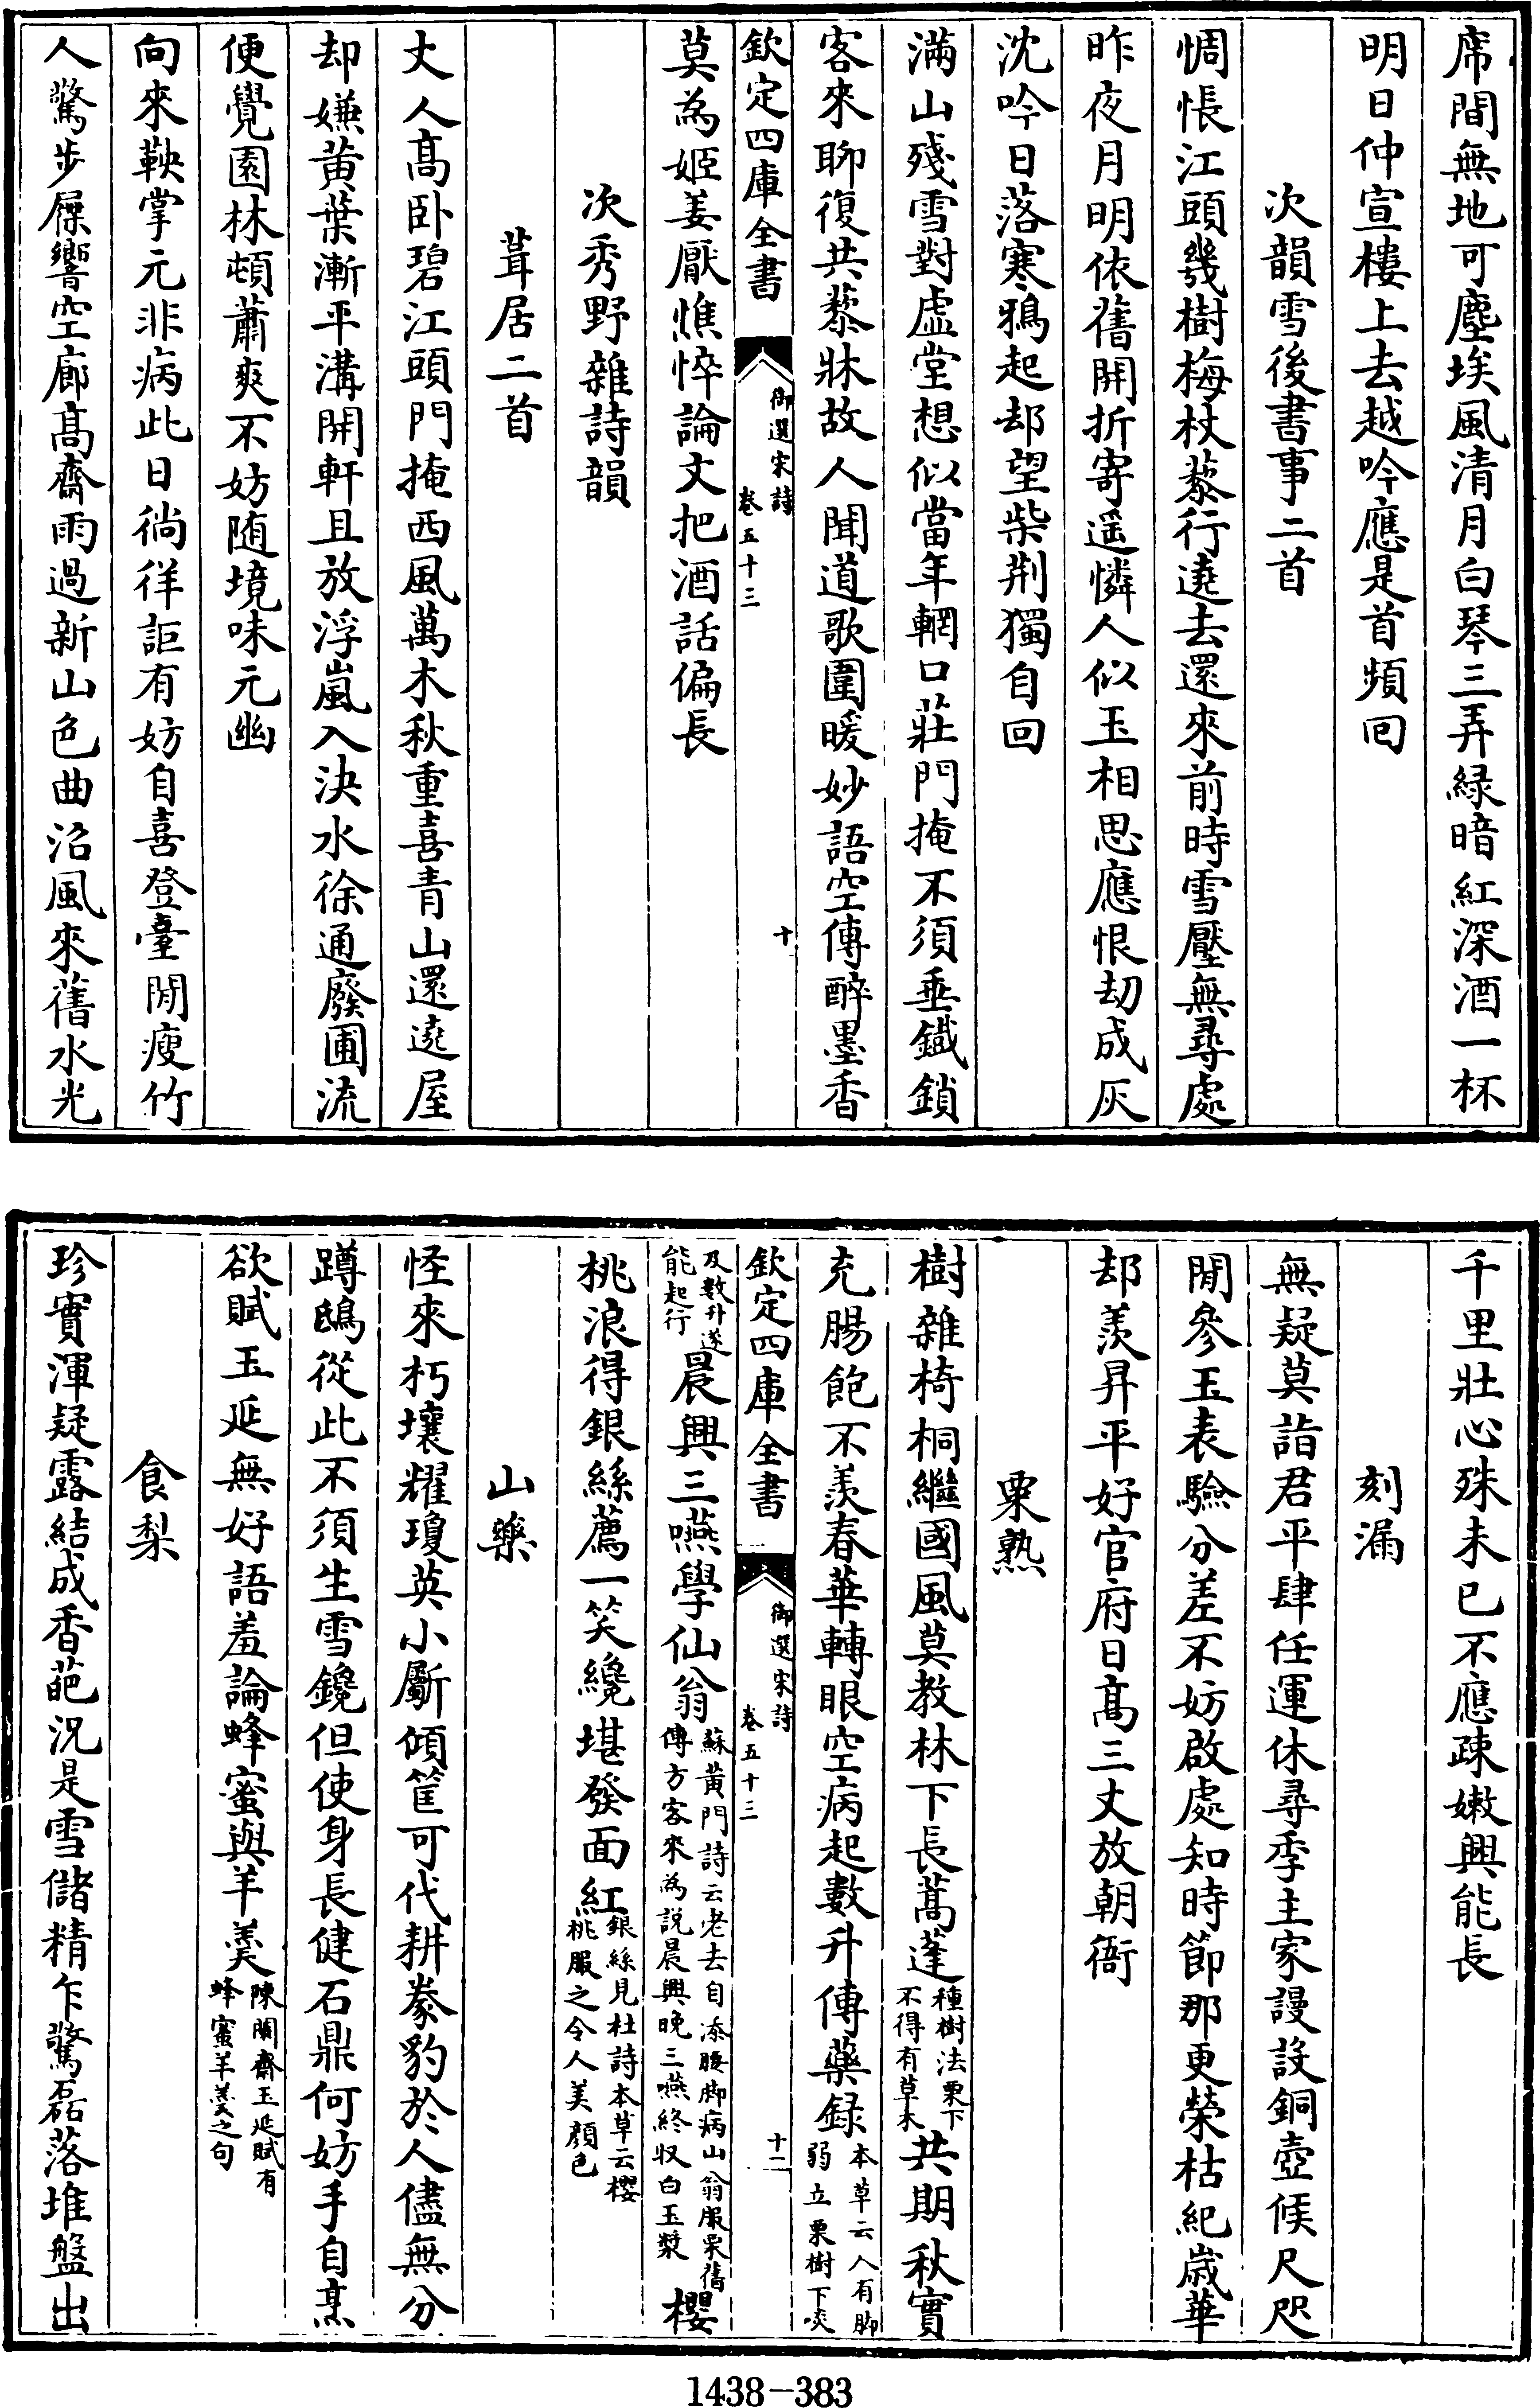 席間無地可塵埃風清月白琴三弄緑暗紅深酒一杯
明日仲宣樓上去越吟應是首頻回
次韻雪後書事二首
惆悵江頭幾樹梅杖藜行遶去還來前時雪壓無尋處
昨夜月明依舊開折寄遥憐人似玉相思應恨刧成灰
沈吟日落寒鴉起却望柴荆獨自回
滿山殘雪對虛堂想似當年輞口莊門掩不須垂鐵鎖
客來聊復共藜牀故人聞道歌圍暖妙語空傳醉墨香
欽定四庫全書 御選宋詩 卷五十三 十
莫為姬姜厭憔悴論文把酒話偏長
次秀野雜詩韻
葺居二首
丈人髙卧碧江頭門掩西風萬木秋重喜青山還遶屋
却嫌黄葉漸平溝開軒且放浮嵐入決水徐通廢圃流
便覺園林頓蕭爽不妨随境味元幽
向來鞅掌元非病此日徜徉詎有妨自喜登臺閒瘦竹
人驚步屧響空廊髙齋雨過新山色曲沼風來舊水光
千里壯心殊未已不應疎嫩興能長
刻漏
無疑莫詣君平肆任運休尋季主家謾設銅壺候尺咫
閒參玉表驗分差不妨啟處知時節那更榮枯紀嵗華
却羡昇平好官府日髙三丈放朝衙
栗熟
樹雜椅桐繼國風莫教林下長蒿蓬種樹法栗下不得有草木共期秋實
充腸飽不羡春華轉眼空病起數升傳藥録本草云人有脚弱立栗樹下啖
欽定四庫全書 御選宋詩 卷五十三 十二
及數升遂能起行晨興三嚥學仙翁蘇黄門詩云老去自添腰脚病山翁服栗舊傳方客來為説晨興晚三嚥終収白玉漿櫻
桃浪得銀絲薦一笑纔堪發面紅銀絲見杜詩本草云櫻桃服之令人美顔色
山藥
怪來朽壤耀瓊英小斸傾筐可代耕豢豹於人儘無分
蹲鴟從此不須生雪鑱但使身長健石鼎何妨手自烹
欲賦玉延無好語羞論蜂蜜與羊羹陳簡齋玉延賦有蜂蜜羊羹之句
食梨
珍實渾疑露結成香葩況是雪儲精乍驚磊落堆盤出
1438－383